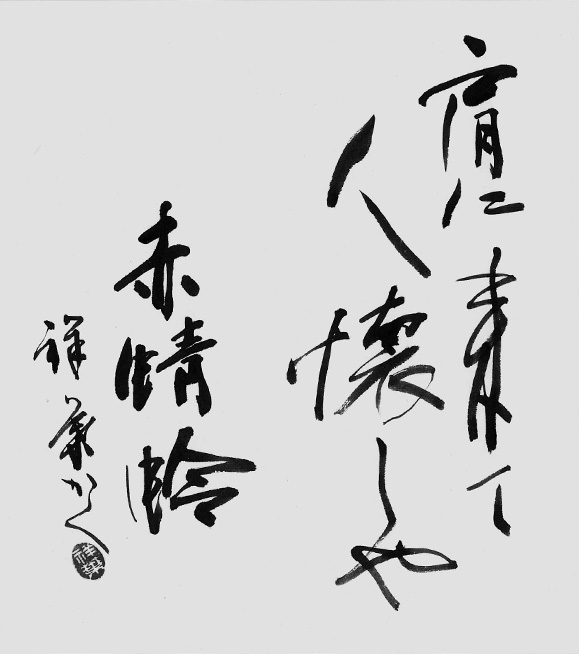 肩に来て
人懐しや
赤蜻蛉
祥葉かく